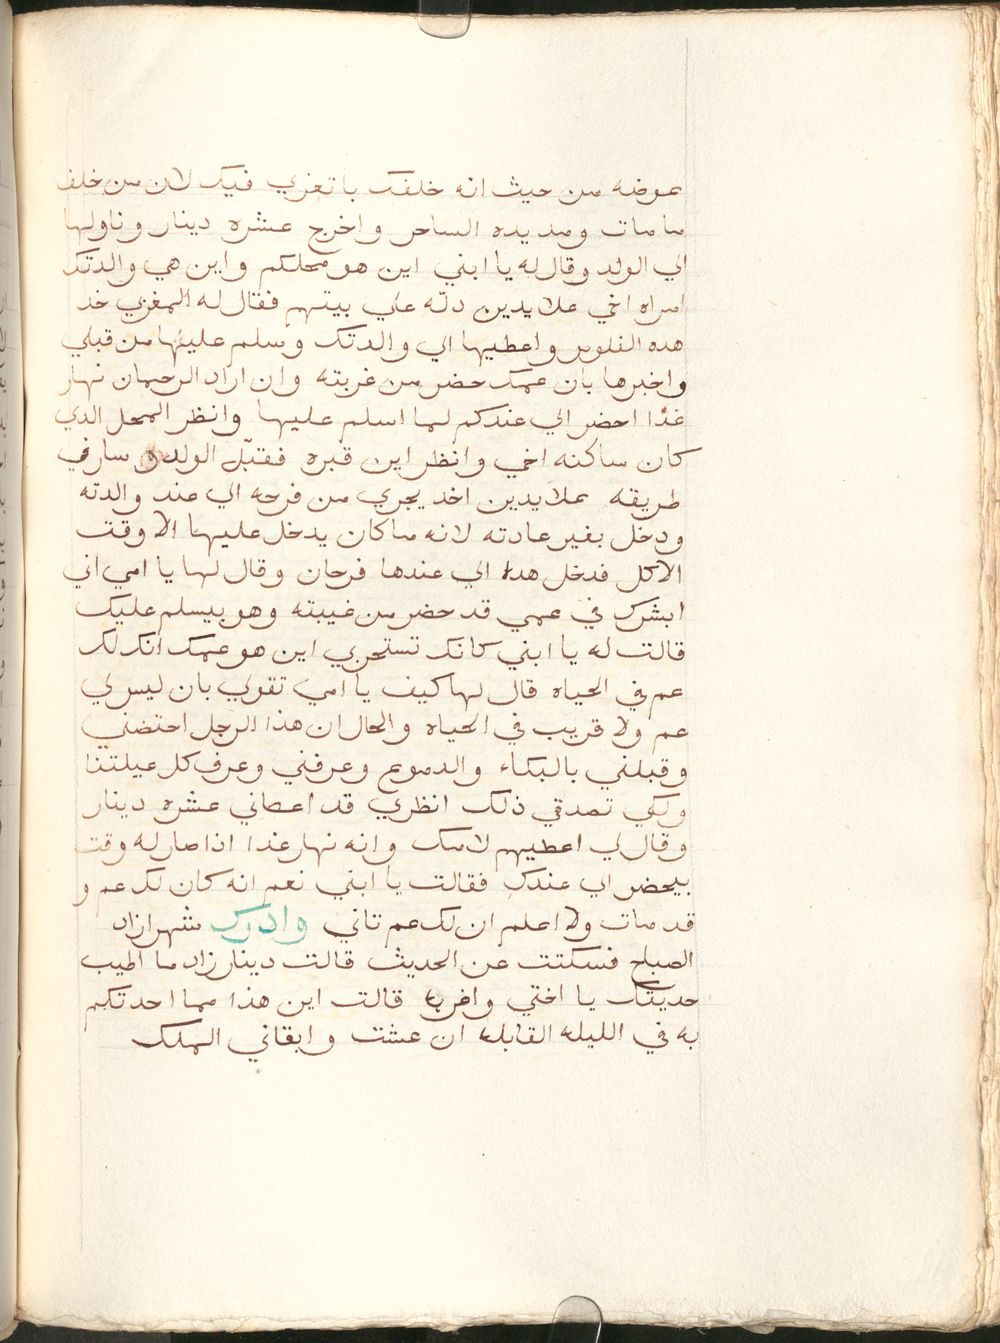 عوضه من حيث انه خلفك باتعزي فيك لان من خلف
ما مات ومد يده الساحر واخرج عشره دينار وناولها
الي الولد وقال له يا ابني اين هو محلكم واين هي والدتك
امراه اخي علايدين دله علي بيتهم فقال له المغربي خد
هده الفلوس واعطيها الي والدتك وسلم عليها من قبلي
واخبرها بان عمك حضر من غربته وان اراد الرحمان نهار
غدا احضر الي عندكم لما اسلم عليها وانظر المحل الدي
كان ساكنه اخي وانظر اين قبره فقبّل الولد وسار في
طريقه علايدين اخد يجري من فرحه الي عند والدته
ودخل بغير عادته لانه ما كان يدخل عليها الا وقت
الاكل فدخل هدا الي عندها فرحان وقال لها يا امي اني
ابشرك في عمي قد حضر من غيبته وهو بيسلم عليك
قالت له يا ابني كانك تستحري اين هو عمك انك لك
عم في الحياه قال لها كيف يا امي تقولي بان ليس لي
عم ولا قريب في الحياه والحال ان هذا الرجل احتضني
وقبلني بالبكاء والدموع وعرفني وعرف كل عيلتنا
ولكي تصدقي ذلك انظري قد اعطاني عشره دينار
وقال لي اعطيهم لامك وانه نهار غدا اذا صار له وقت
بيحضر الي عندك فقالت يا ابني نعم انه كان لك عم و
قد مات ولا اعلم ان لك عم تاني وادرك شهرازاد
الصباح فسكتت عن الحديث قالت دينارزاد ما اطيب
حديتك يا اختي واغربه قالت اين هذا مما احدتكم
به في الليله القابله ان عشت وابقاني الملك